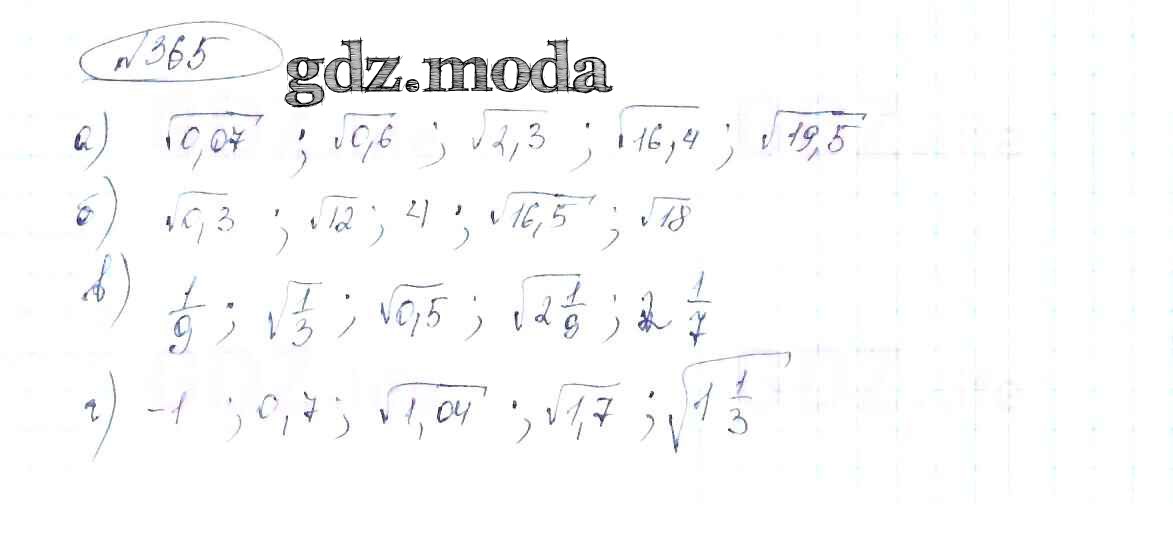 №365
gdz.moda
а) √0,07 ; √0,6 ; √2,3 ; √16,4 ; √19,5
б) √0,3 ; √12 ; 4 ; √16,5 ; √18
в) 1/9 ; √1/3 ; √0,5 ; √2 1/9 ; 2 1/7
г) -1 ; 0,7 ; √1,04 ; √1,7 ; √1 1/3